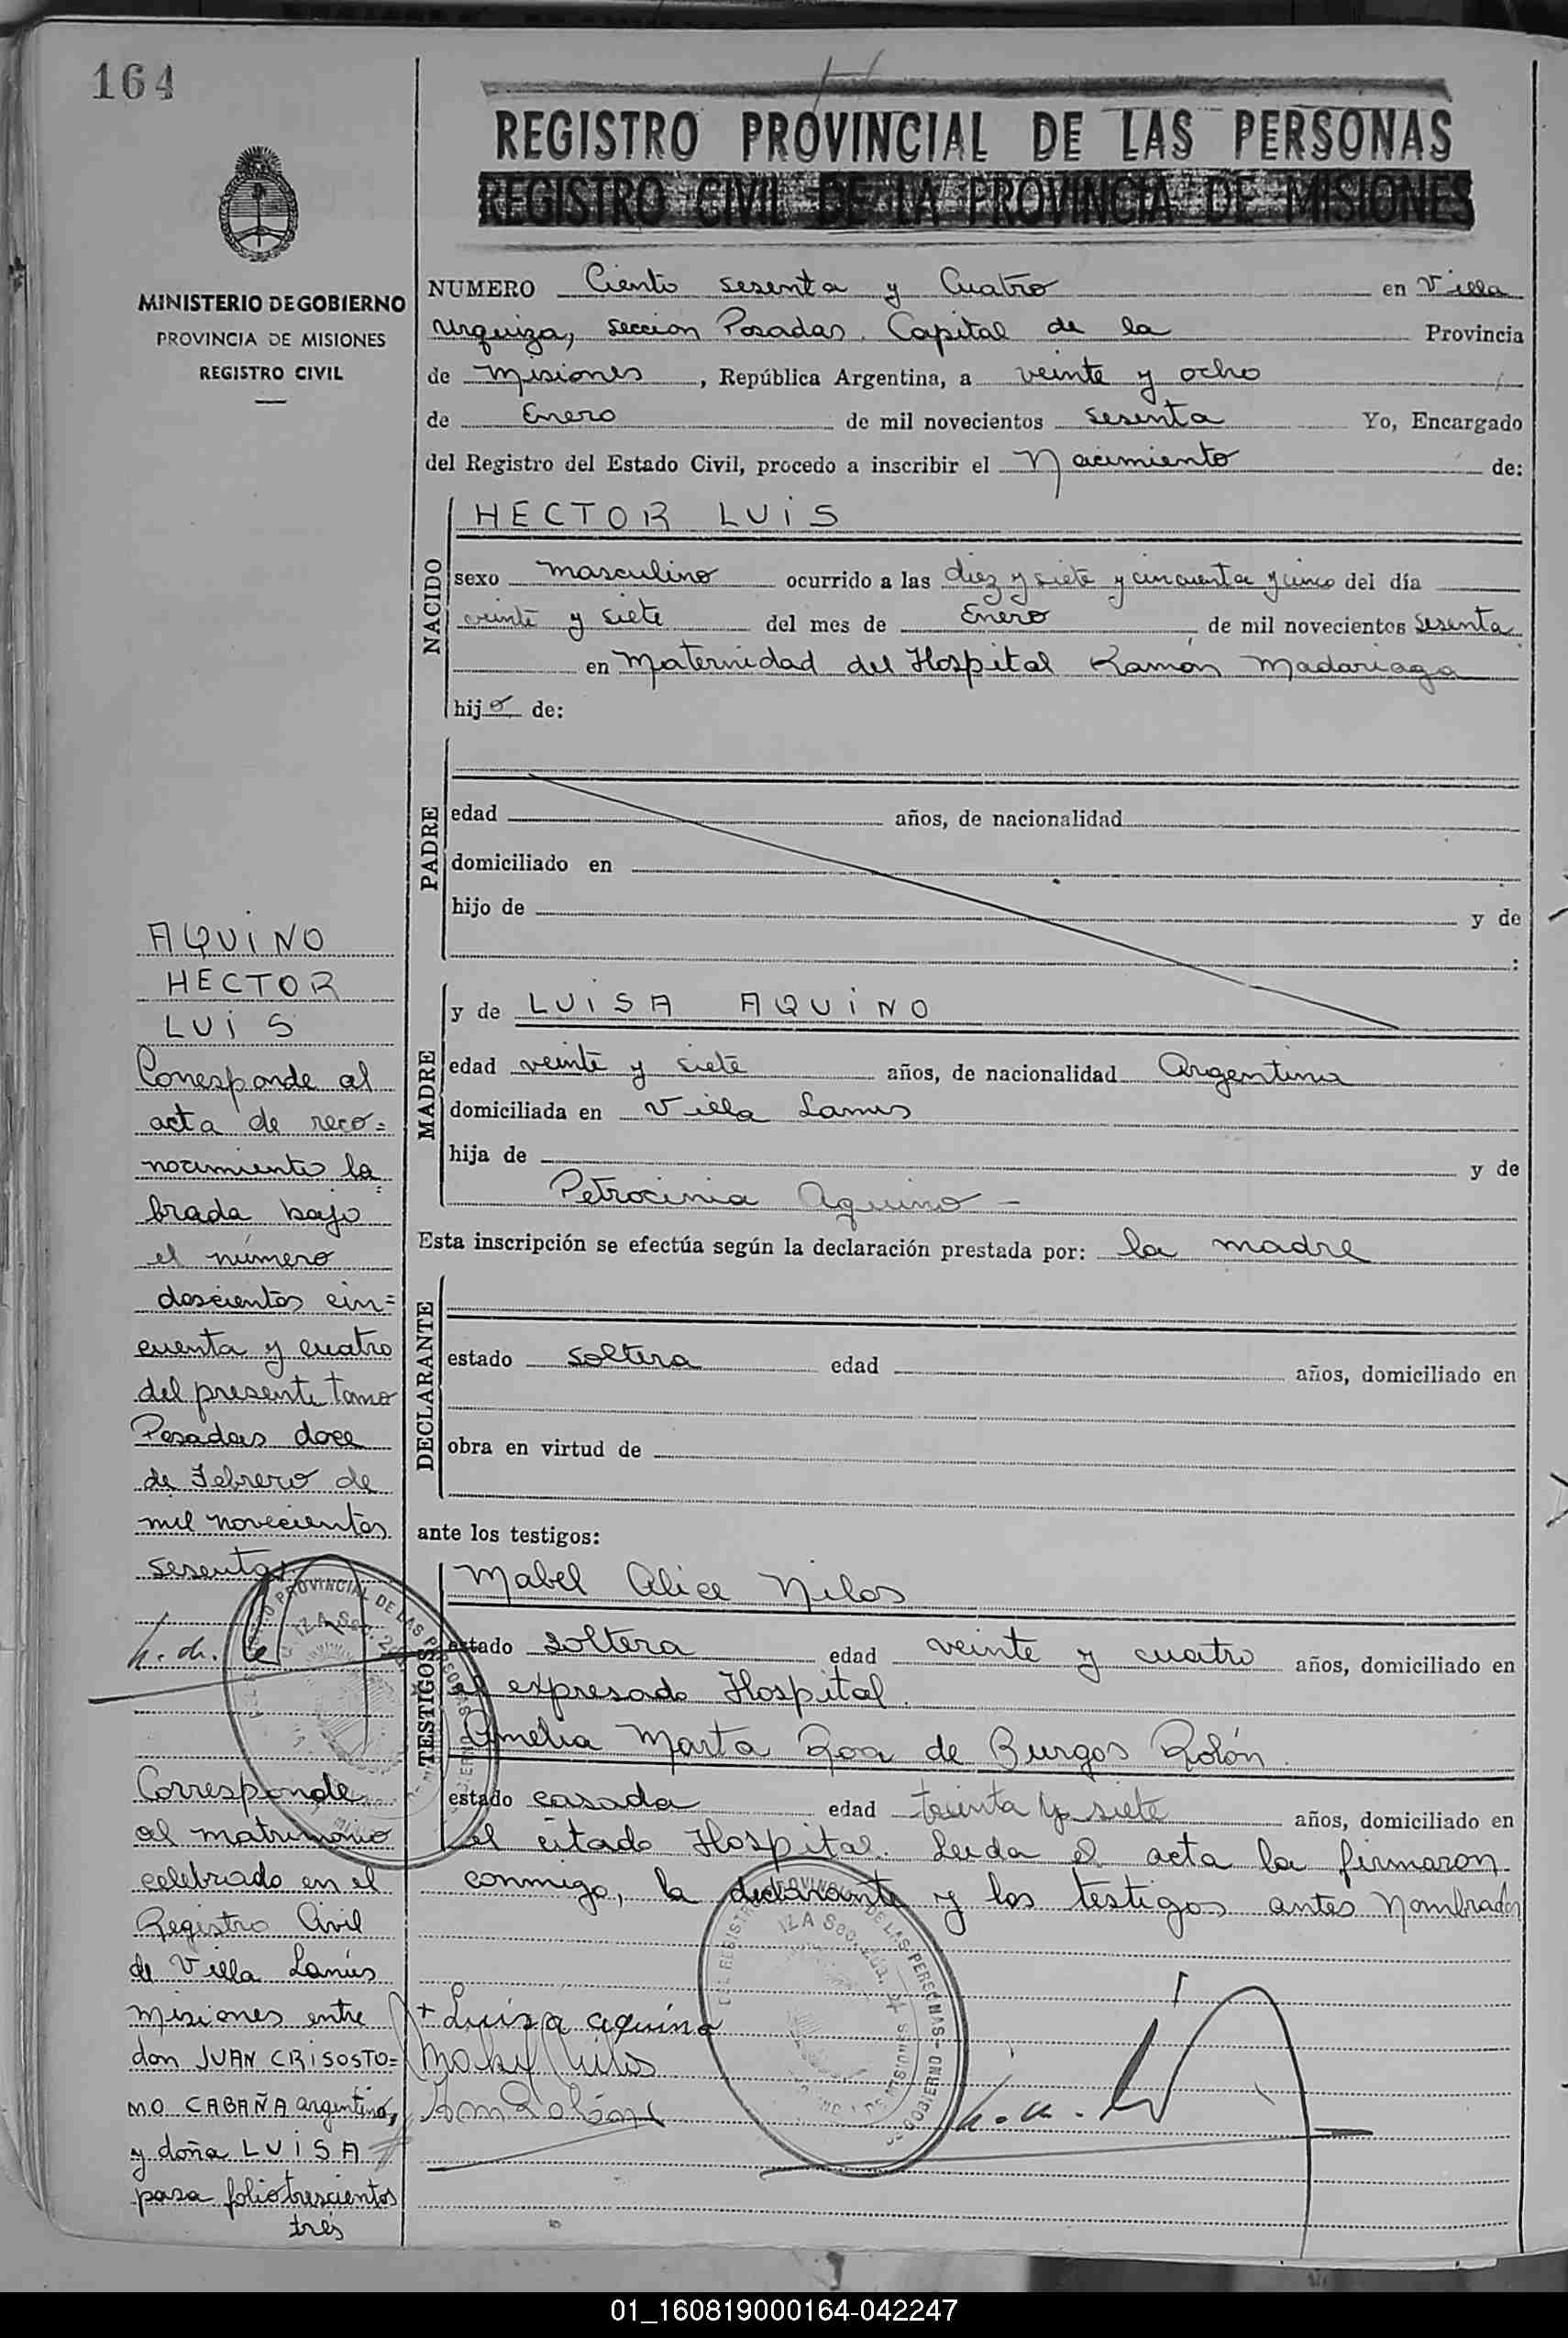 164
MINISTERIO DE GOBIERNO
PROVINCIA DE MISIONES
REGISTRO CIVIL
REGISTRO PROVINCIAL DE LAS PERSONAS
REGISTRO CIVIL DE LA PROVINCIA DE MISIONES
NUMERO Ciento sesenta y Cuatro en Villa
Urquiza, seccion Posadas. Capital de la Provincia
de Misiones, República Argentina, a veinte y ocho
de Enero de mil novecientos sesenta Yo, Encargado
del Registro del Estado Civil, procedo a inscribir el Nacimiento de:
NACIDO
HECTOR LUIS
sexo masculino ocurrido a las diez y siete y cincuenta y cinco del día
veinte y siete del mes de Enero, de mil novecientos sesenta
en Maternidad del Hospital Ramón Madariaga
hijo de:
PADRE
edad años, de nacionalidad
domiciliado en
hijo de y de
:
MADRE
y de LUISA AQUINO
edad veinte y siete años, de nacionalidad Argentina
domiciliada en Villa Lanus
hija de y de
Petrocinia Aquino -
Esta inscripción se efectúa según la declaración prestada por: la madre
DECLARANTE
estado soltera edad años, domiciliado en
obra en virtud de
ante los testigos:
TESTIGOS
Mabel Alice Nilos
estado soltera edad veinte y cuatro años, domiciliado en
el expresado Hospital.
Amelia Marta Roa de Burgos Rolón
estado casada edad treinta y siete años, domiciliado en
el citado Hospital. Leida el acta la firmaron
conmigo, la declarante y los testigos antes nombrados
+ Luisa aquino
AQUINO
HECTOR
LUIS
Corresponde al
acta de reco=
nocimiento la=
brada bajo
el número
doscientos cin=
cuenta y cuatro
del presente tomo
Posadas doce
de Febrero de
mil novecientos
sesenta
Corresponde
al matrimonio
celebrado en el
Registro Civil
de Villa Lanús
Misiones entre
don JUAN CRISOSTO=
MO CABAÑA argentino,
y doña LUISA
pasa folio trescientos
tres
01_160819000164-042247